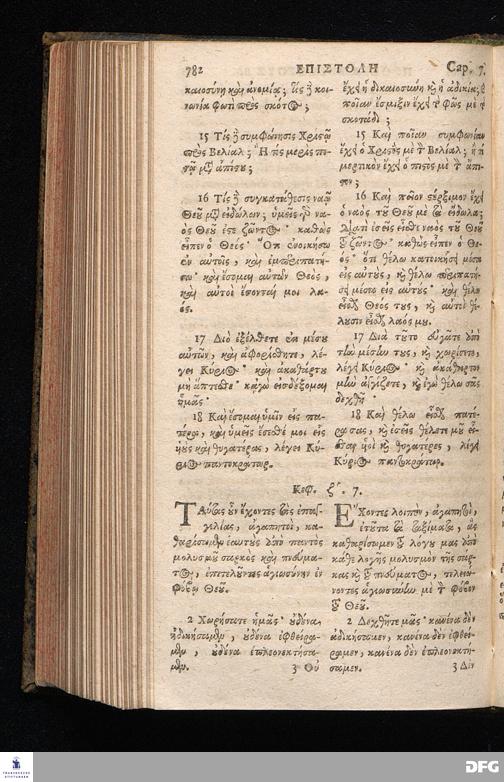 782 ΕΠΙΣΤΟΛΗ Cap. 7.
καιοσύνῃ καὶ ἀνομίᾳ; τίς δὲ κοι-
νωνία φωτὶ πρὸς σκότος;
15 Τίς δὲ συμφώνησις Χριστῷ
πρὸς Βελίαλ; Ἢ τίς μερὶς πι-
στῷ μετὰ ἀπίστου;
16 Τίς δὲ συγκατάθεσις ναῷ
Θεοῦ μετὰ εἰδώλων; ὑμεῖς γὰρ να-
ὸς Θεοῦ ἐστε ζῶντος· καθὼς
εἶπεν ὁ Θεός· Ὅτι ἐνοικήσω
ἐν αὐτοῖς, καὶ ἐμπεριπατή-
σω· καὶ ἔσομαι αὐτῶν Θεὸς,
καὶ αὐτοὶ ἔσονταί μοι λα-
ός.
17 Διὸ ἐξέλθετε ἐκ μέσου
αὐτῶν, καὶ ἀφορίσθητε, λέ-
γει Κύριος· καὶ ἀκαθάρτου
μὴ ἅπτεσθε· κᾀγὼ εἰσδέξομαι
ὑμᾶς·
18 Καὶ ἔσομαι ὑμῖν εἰς πα-
τέρα, καὶ ὑμεῖς ἔσεσθέ μοι εἰς
υἱοὺς καὶ θυγατέρας, λέγει Κύ-
ριος παντοκράτωρ.
ἔχει ἡ δικαιοσύνη καὶ ἡ ἀδικία;
ποῖαν ἔσμιξιν ἔχει τὸ φῶς μὲ τὸ
σκοτάδι;
15 Καὶ ποῖαν συμφωνίαν
ἔχει ὁ Χριστὸς μὲ τὸν Βελίαλ; ἢ τί
μερτικὸν ἔχει ὁ πιστὸς μὲ τὸν ἄπι-
στον;
16 Καὶ ποῖον σέρξιμον ἔχει
ὁ ναὸς τοῦ Θεοῦ μὲ τὰ εἴδωλα;
Διατὶ ἐσεῖς εἶσθε ναὸς τοῦ Θεοῦ
τοῦ ζῶντος· καθὼς εἶπεν ὁ Θε-
ός· ὅτι θέλω κατοικήσῃ μέσα
εἰς αὐτοὺς, καὶ θέλω περιπατή-
σῃ μέσα εἰς αὐτούς· καὶ θέλω
εἶσθαι Θεός τους, καὶ αὐτοὶ θέ-
λουσιν εἶσθαι λαός μου.
17 Διὰ τοῦτο εὐγᾶτε ἀπὸ
τὴν μέσην τους, καὶ χωρίσετε,
λέγει Κύριος· καὶ ἀκάθαρτον
μὴν ἀγγίζετε, καὶ ἐγὼ θέλω σᾶς
δεχθῆ·
18 Καὶ θέλω εἶσθαι πατέ-
ρα σας, καὶ ἐσεῖς θέλετε μοῦ εἶ-
σθαι υἱοὶ καὶ θυγατέρες, λέγει
Κύριος παντοκράτωρ.
Κεφ. ζʹ. 7.
Ταύτας οὖν ἔχοντες τὰς ἐπαγ-
γελίας, ἀγαπητοὶ, κα-
θαρίσωμεν ἑαυτοὺς ἀπὸ παντὸς
μολυσμοῦ σαρκὸς καὶ πνεύμα-
τος, ἐπιτελοῦντες ἁγιωσύνην ἐν
φόβῳ Θεοῦ.
2 Χωρήσατε ἡμᾶς· οὐδένα
ἠδικήσαμεν, οὐδένα ἐφθείρα-
μεν, οὐδένα ἐπλεονεκτήσα-
μεν.
3 Οὐ
Ἔχοντες λοιπὸν, ἀγαπητοὶ,
ἐτοῦτα τὰ ταξίματα, ἂς
καθαρίσωμεν τοῦ λόγου μας ἀπὸ
κάθε λογῆς μολυσμὸν τῆς σάρ-
κας καὶ τοῦ πνεύματος, τελειώ-
νοντες ἁγιωσύνην μὲ τὸν φόβον
τοῦ Θεοῦ.
2 Δεχθῆτε μᾶς· κανένα δὲν
ἀδικήσαμεν, κανένα δὲν ἐφθεί-
ραμεν, κανένα δὲν ἐπλεονεκτή-
σαμεν.
3 Δὲν
FRANCKESCHE
STIFTUNGEN
DFG